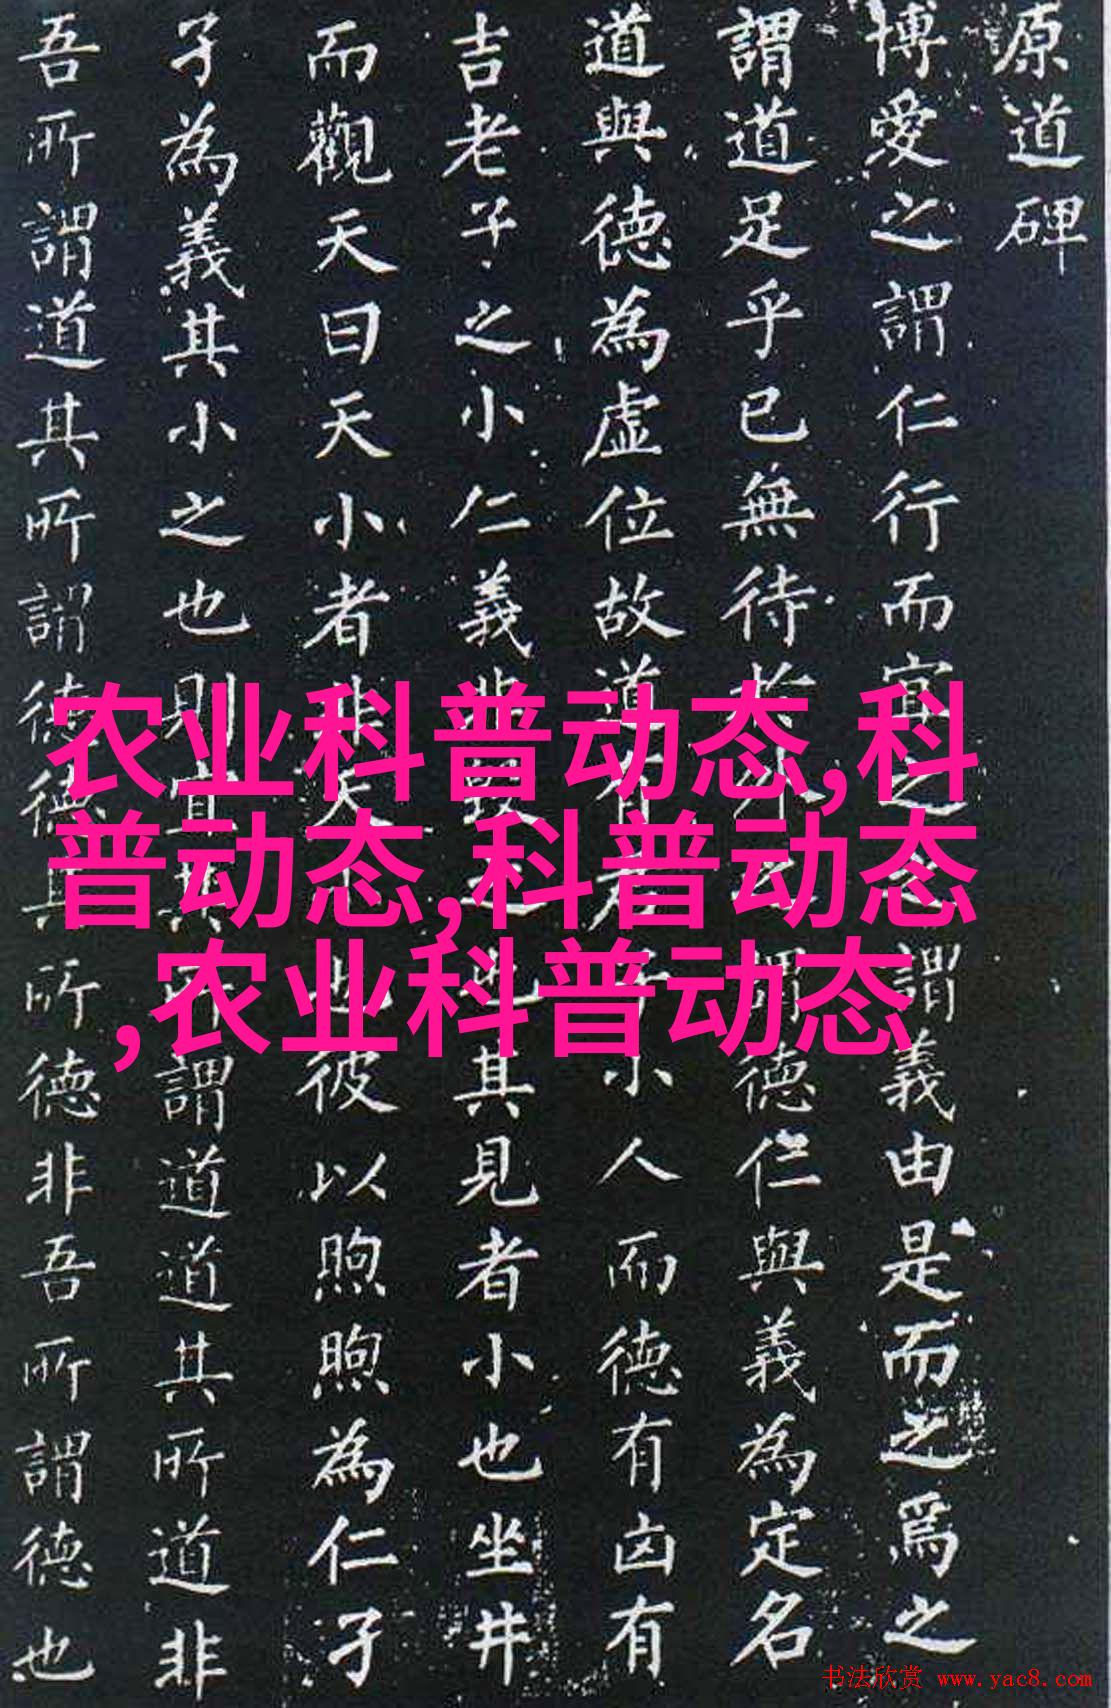 原道碑
博愛之謂仁行而宜之之謂義由是而之焉之
謂道足乎已無待於外之謂德仁與義為定名
道與德為虛位故道有君子小人而德有凶有
吉老子之小仁義非毀之也其見者小也坐井
而觀天曰天小者非天小也彼以煦煦為仁孑
孑為義其小之也則宜其所謂道道其所道非
吾所謂道其所謂德德其所德非吾所謂德也
农业科普动态,科
普动态,科普动态
,农业科普动态
书法欣赏 www.yac8.com